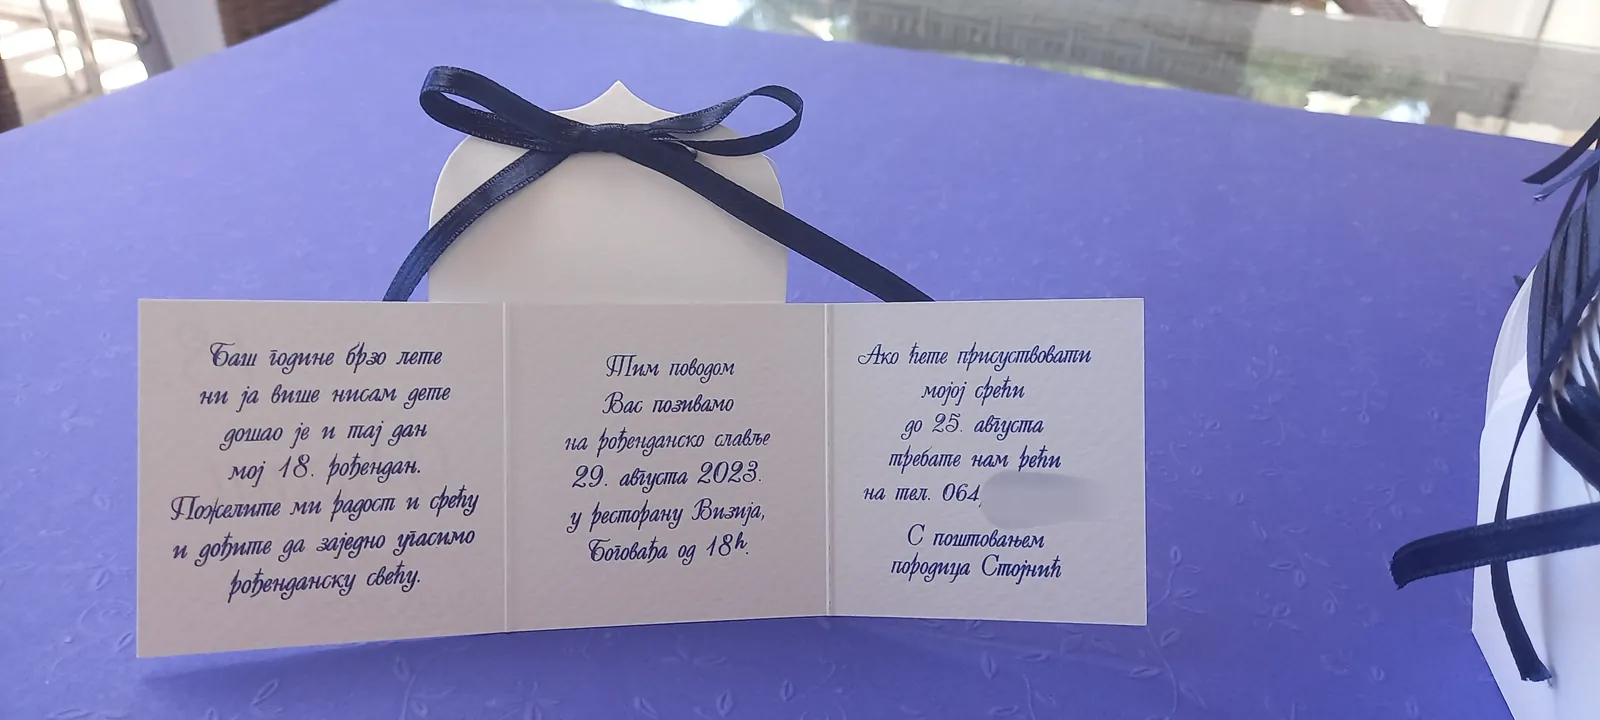 Баш године брзо лете
ни ја више нисам дете
дошао је и тај дан
мој 18. рођендан.
Пожелите ми радост и срећу
и дођите да заједно угасимо
рођенданску свећу.
Тим поводом
Вас позивамо
на рођенданско славље
29. августа 2023.
у ресторану Визија,
Боговађа од 18h.
Ако ћете присуствовати
мојој срећи
до 25. августа
требате нам рећи
на тел. 064
С поштовањем
породица Стојнић